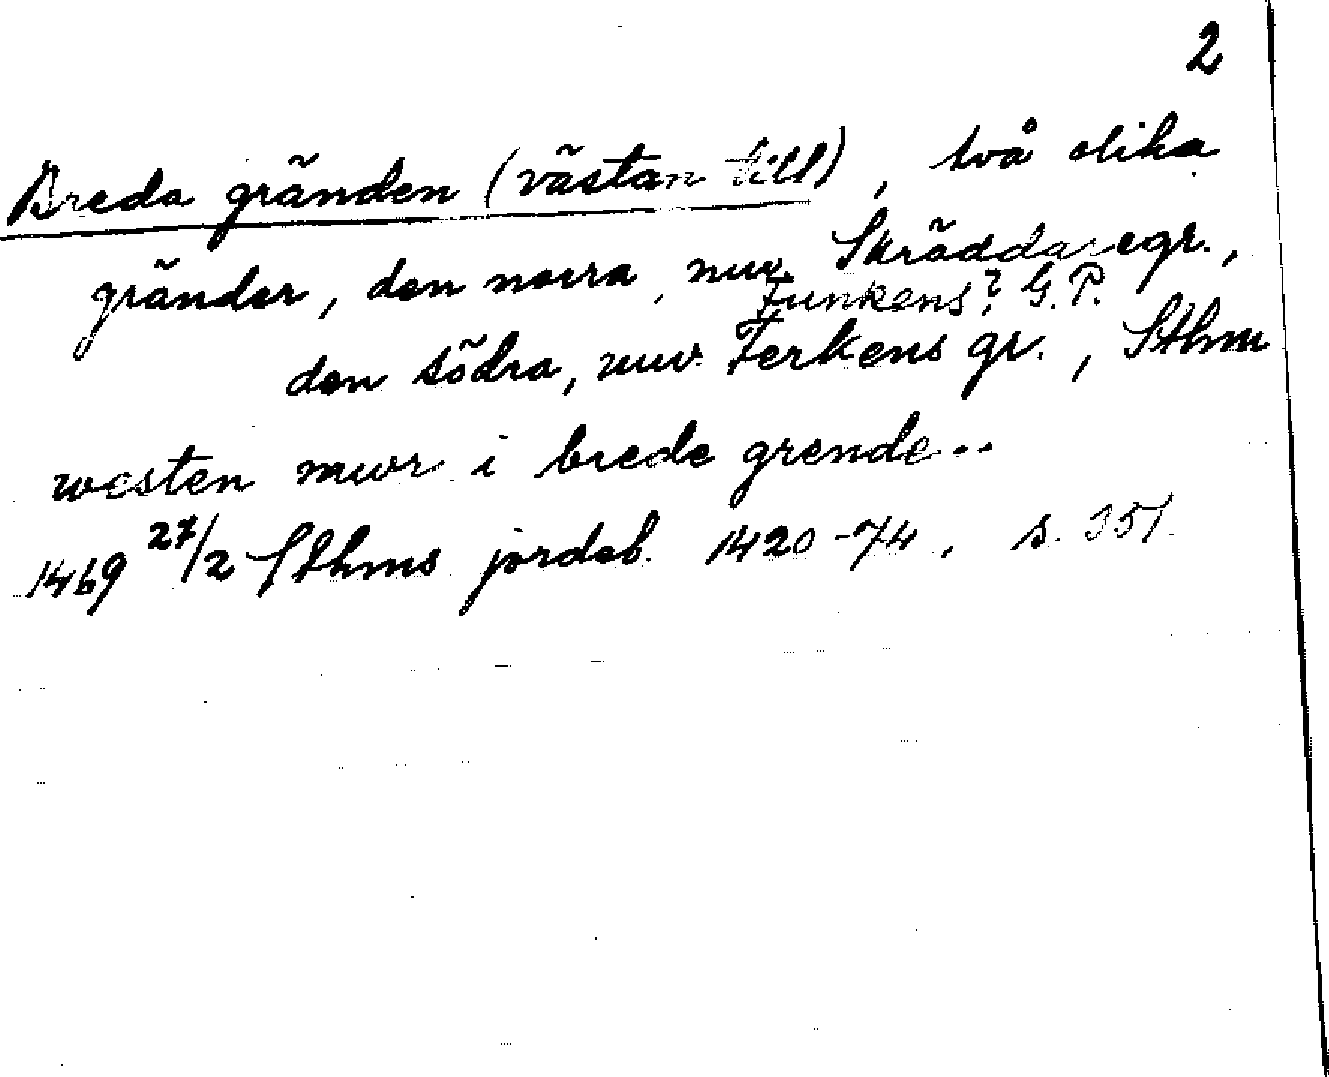 2
Breda gränden (västan till), två olika
gränder, den norra, nuv. Skräddaregr.,
Funkens? G. P.
den södra, nuv. Ferkens gr., Sthm
westen mwr i brede grende..
1469 27/2 Sthms jordeb. 1420-74, s. 351.